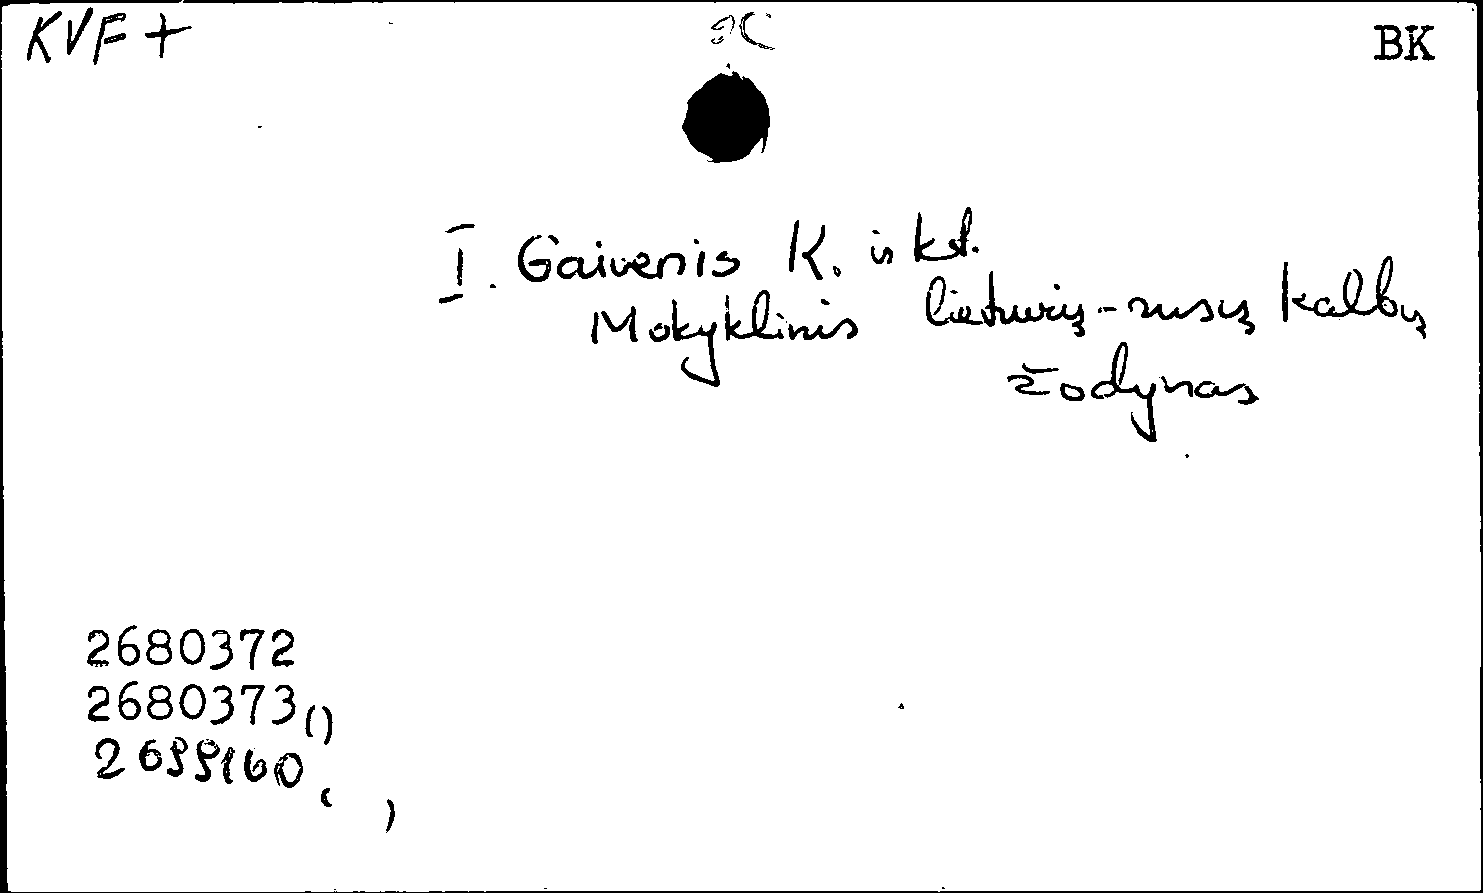 KVF + BK
I. Gaivenis K. ir kt.
Mokyklinis lietuvių-rusų kalbų
žodynas
2680372
2680373 ( )
2699160 ( )